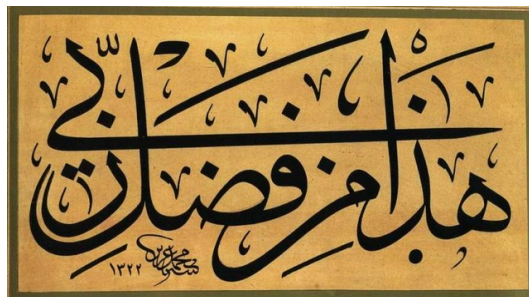 هذا من فضل ربي
١٣٢٢